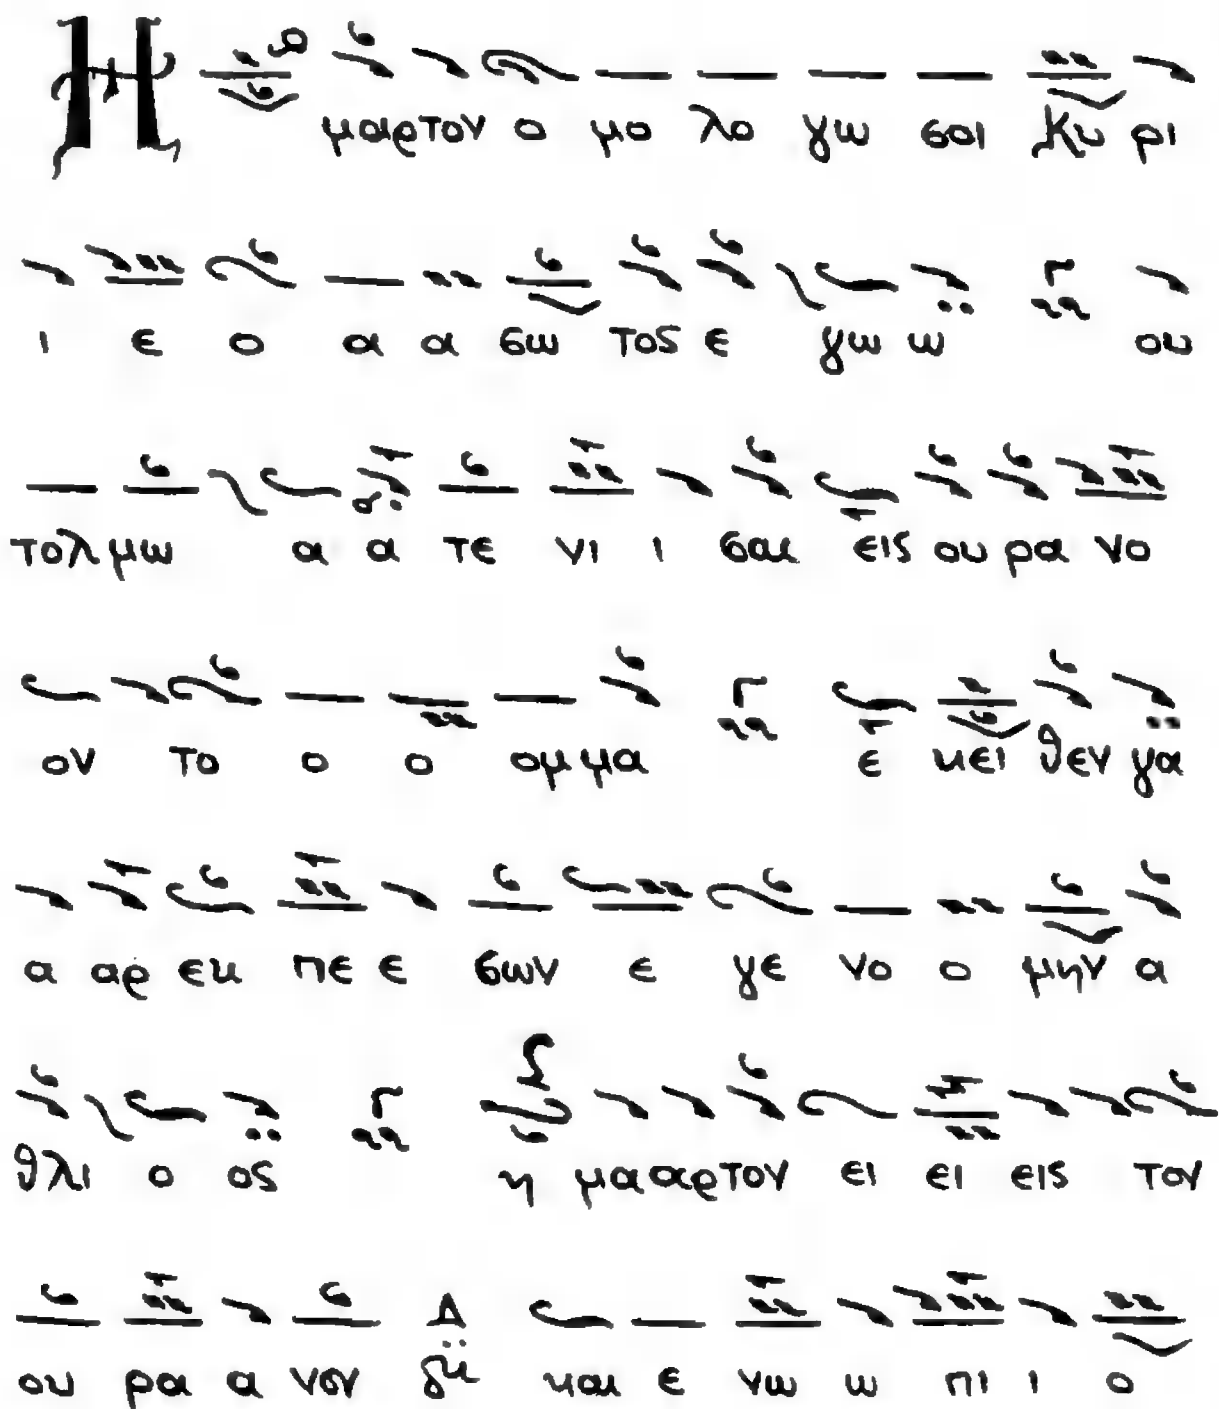 Η μαρτον ο μο λο γω σοι Κυ ρι
ι ε ο α α σω τος ε γω ω ου
τολ μω α α τε νι ι σαι εις ου ρα νο
ον το ο ο ομ μα ε κει θεν γα
α αρ εκ πε ε σων ε γε νο ο μην α
θλι ο ος η μα αρ τον ει ει εις τον
ου ρα α νον Δ δι και ε νω ω πι ι ο